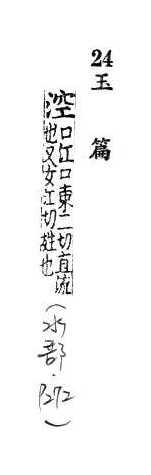 24
玉篇
涳口江口東二切直流
也又女江切姓也
(水部·P272)